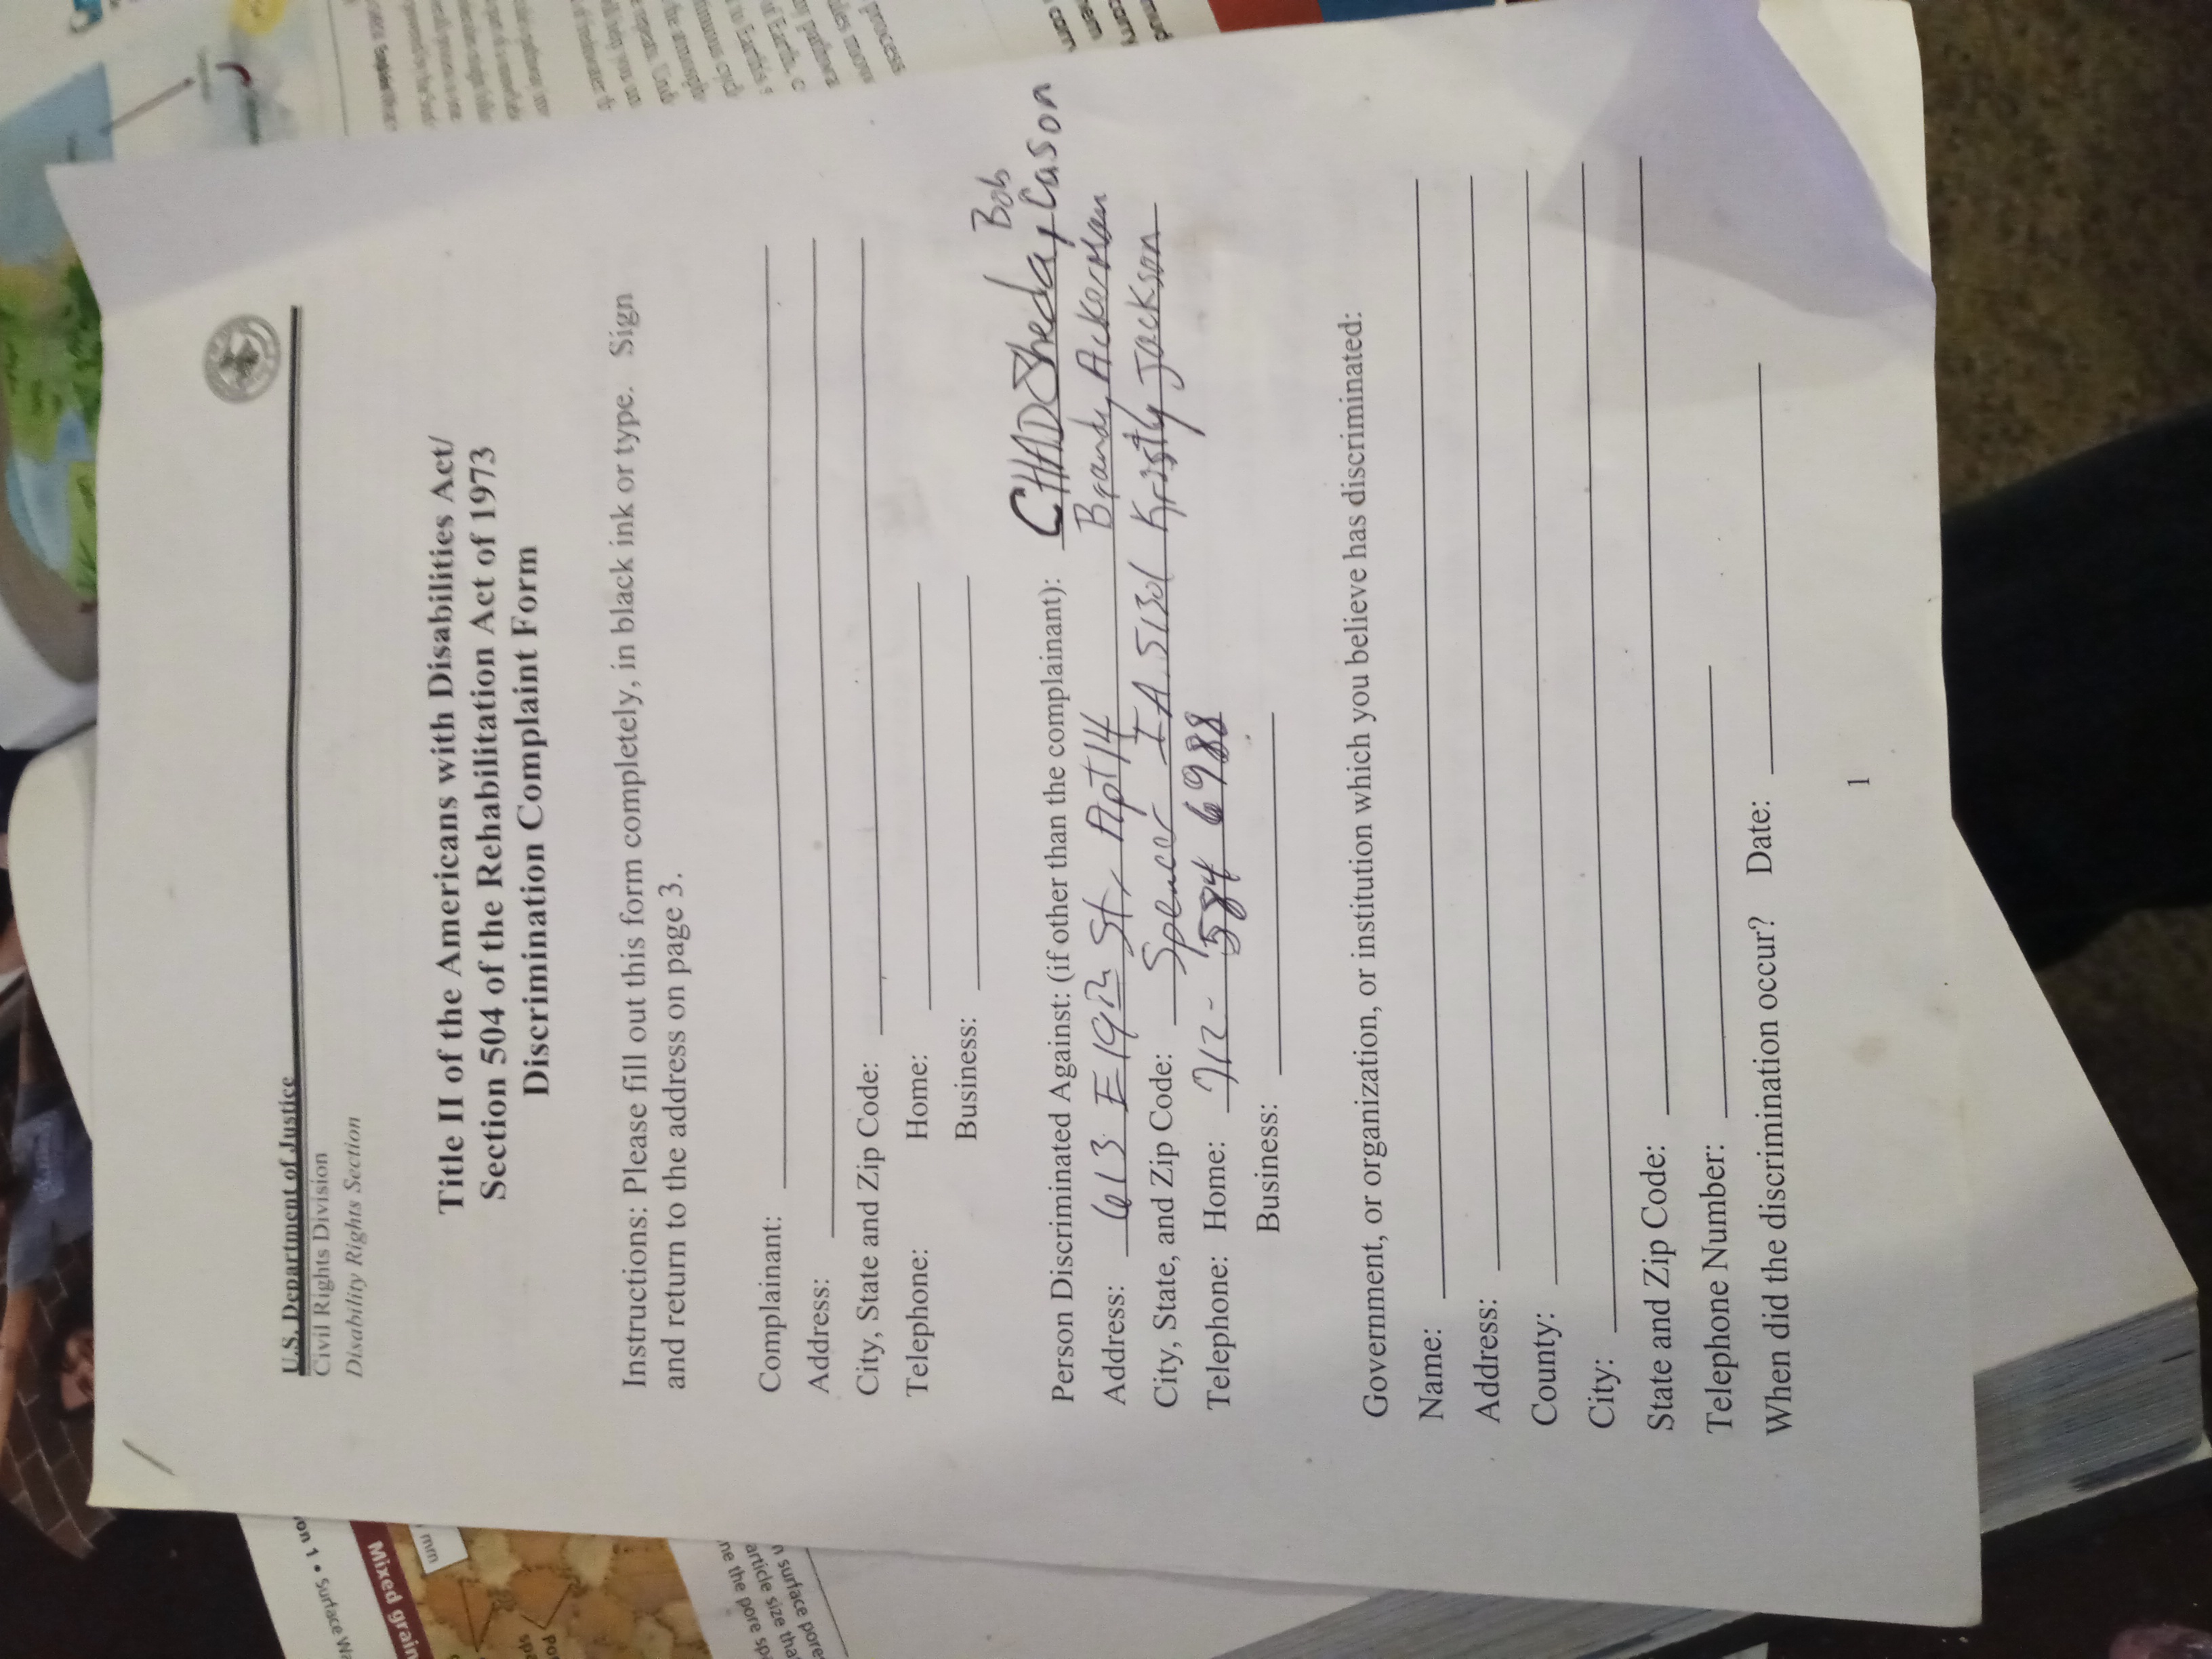 U.S. Department of Justice
Civil Rights Division
Disability Rights Section
Title II of the Americans with Disabilities Act/
Section 504 of the Rehabilitation Act of 1973
Discrimination Complaint Form
Instructions: Please fill out this form completely, in black ink or type. Sign
and return to the address on page 3.
Complainant:
Address:
City, State and Zip Code:
Telephone: Home:
Business:
Bob
Person Discriminated Against: (if other than the complainant): CHAD Sheda, Cason
Address: 613 E 19th St, Apt 14 Brandy Ackerman
City, State, and Zip Code: Spencer IA. 51301 Kristy Jackson
Telephone: Home: 712- 584 6988
Business:
Government, or organization, or institution which you believe has discriminated:
Name:
Address:
County:
City:
State and Zip Code:
Telephone Number:
When did the discrimination occur? Date:
1
on 1 • Surface Wa
Mixed grain
mm
ne the pore spa
article size tha
n surface pore